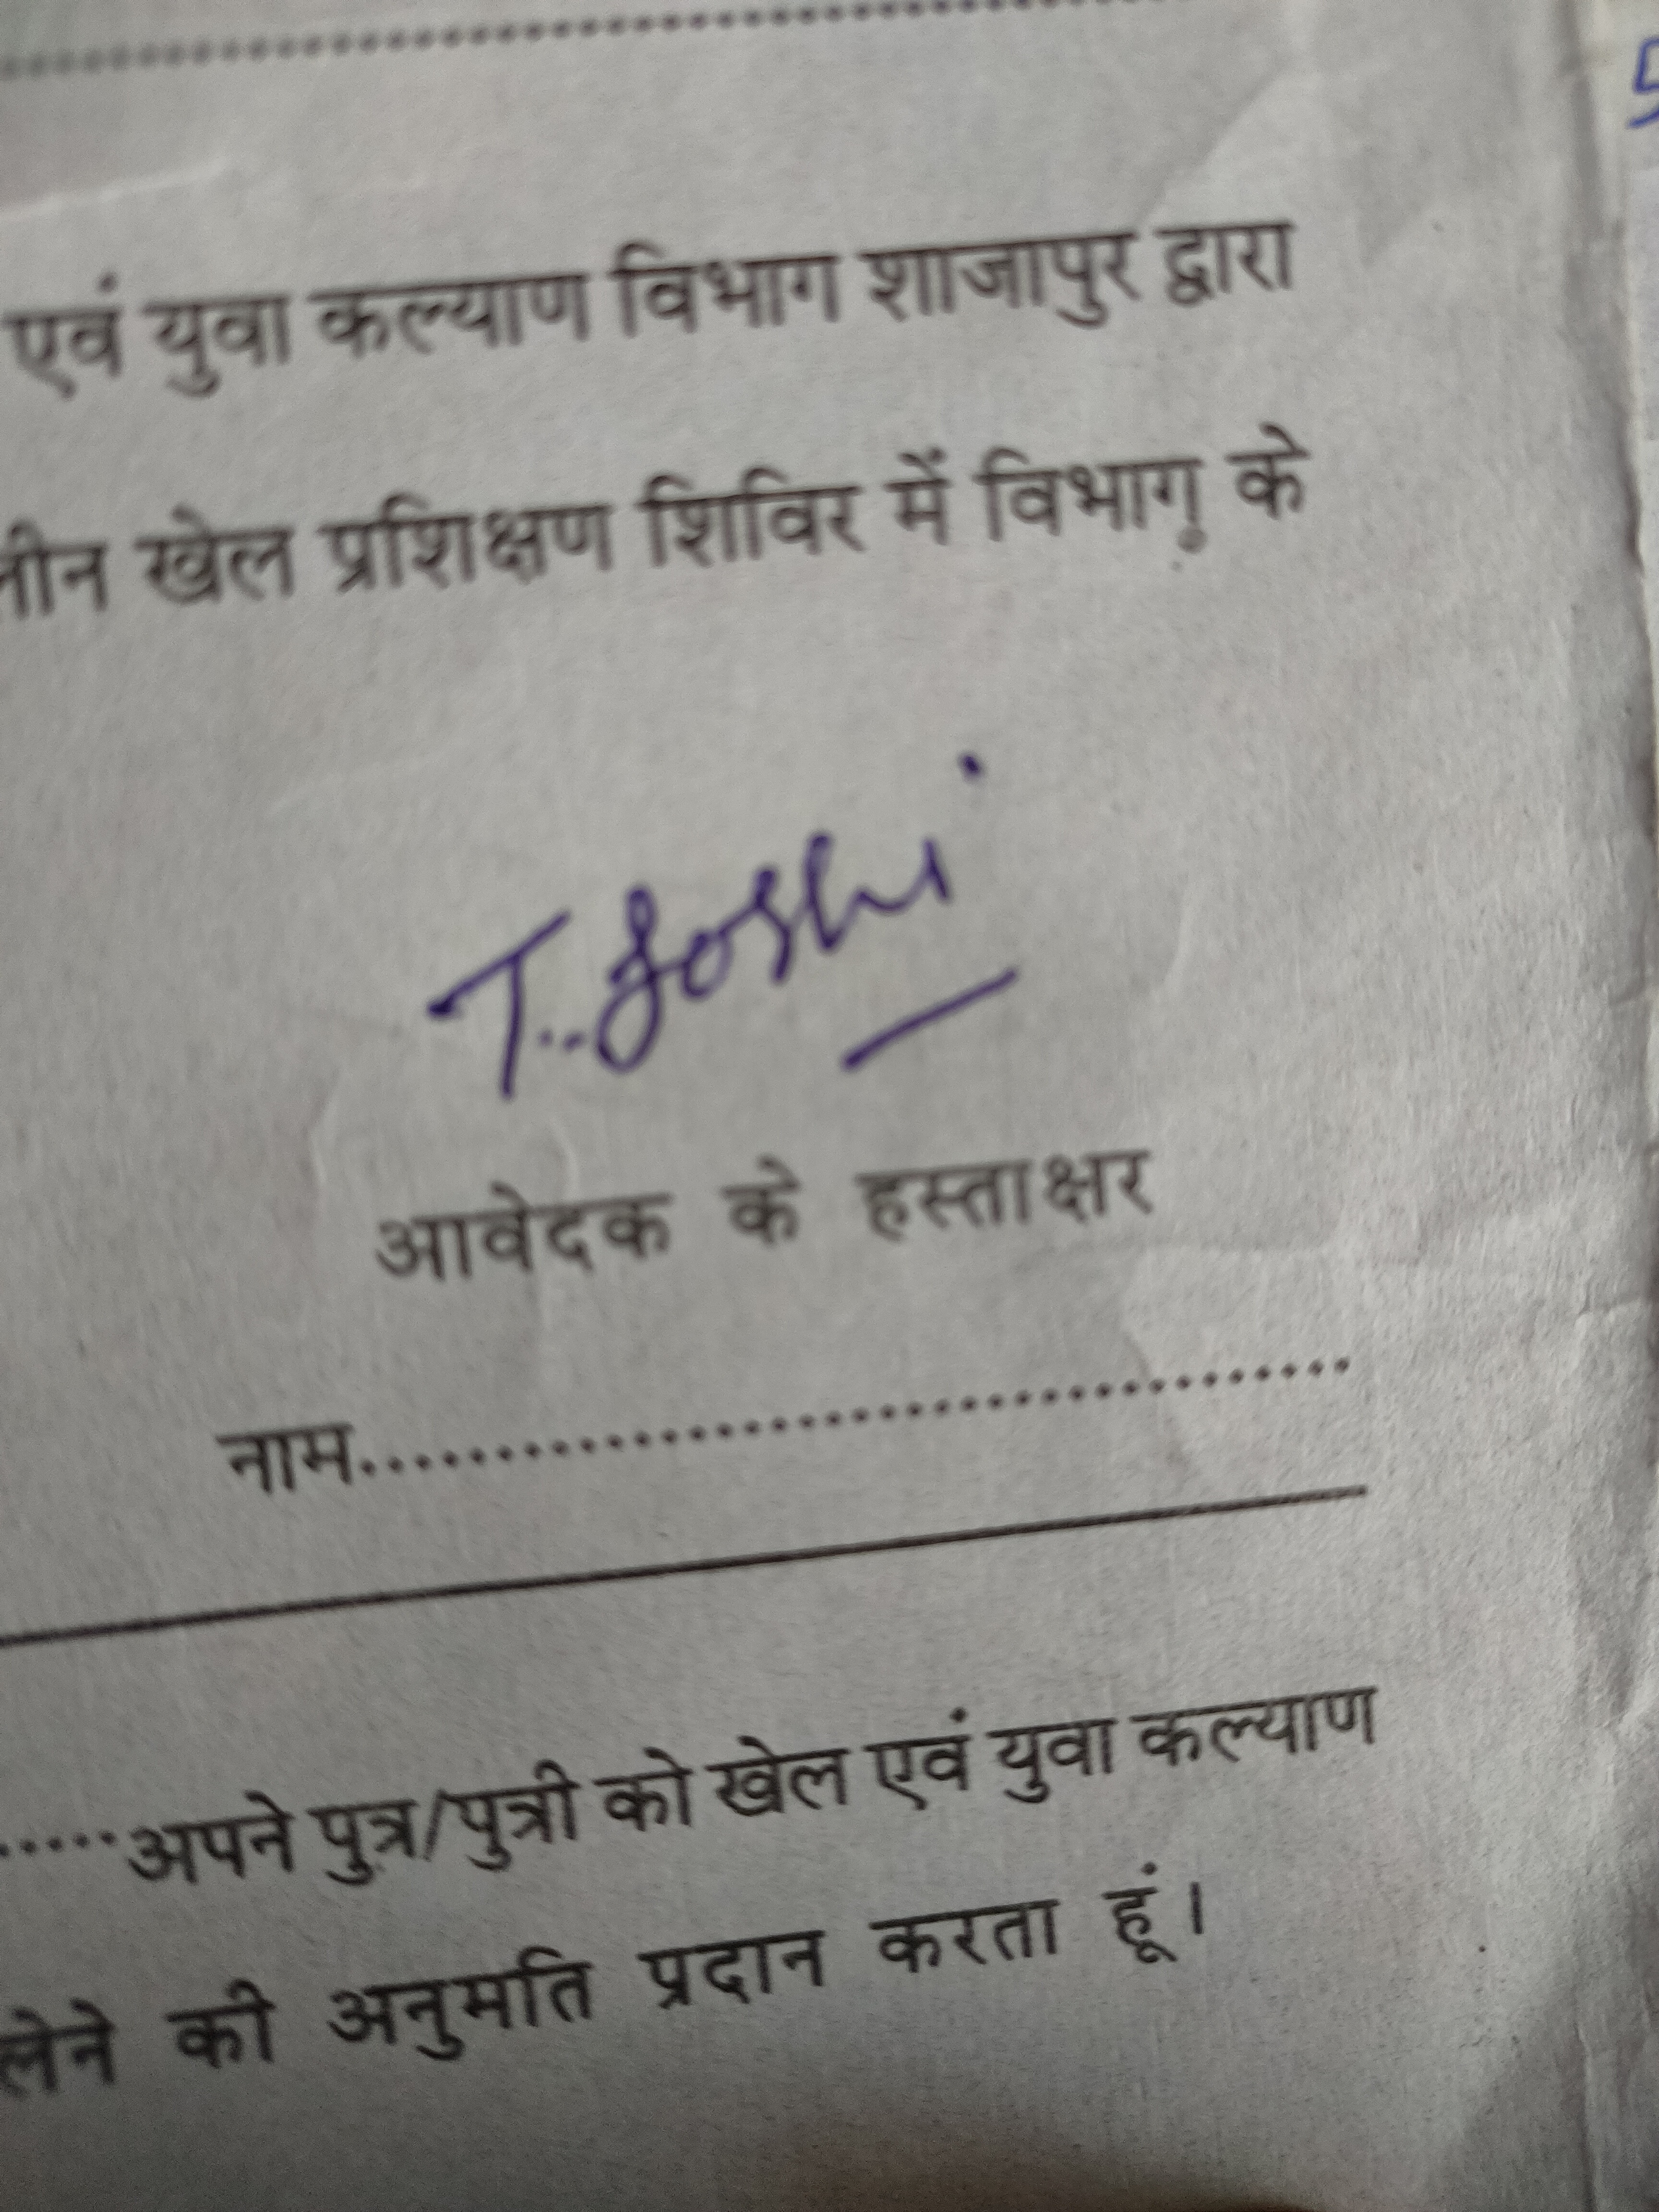 एवं युवा कल्याण विभाग शाजापुर द्वारा
खेल प्रशिक्षण शिविर में विभाग के
T. Joshi
आवेदक के हस्ताक्षर
नाम......................................
.....अपने पुत्र/पुत्री को खेल एवं युवा कल्याण
लेने की अनुमति प्रदान करता हूं।